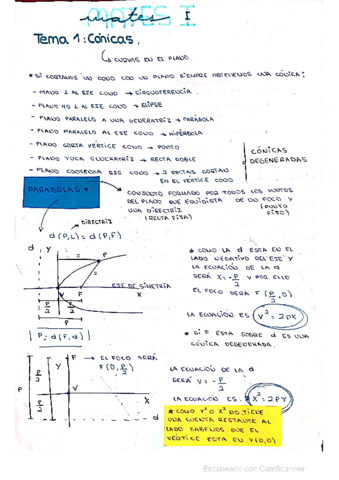 MATES I
mates I
Tema 1: Cónicas.
CURVAS EN EL PLANO
* SI CORTAMOS UN CONO CON UN PLANO SIEMPRE OBTENEMOS UNA CÓNICA:
- PLANO ⊥ AL EJE CONO → CIRCUNFERENCIA.
- PLANO NO ⊥ AL EJE CONO → ELIPSE
- PLANO PARALELO A UNA GENERATRIZ → PARÁBOLA
- PLANO PARALELO AL EJE CONO → HIPÉRBOLA.
- PLANO CORTA VÉRTICE CONO → PUNTO
- PLANO TOCA GENERATRIZ → RECTA DOBLE
- PLANO CONTENGA EJE CONO → 2 RECTAS CORTAN
EN EL VÉRTICE CONO
CÓNICAS
DEGENERADAS
PARÁBOLAS
CONJUNTO FORMADO POR TODOS LOS PUNTOS
DEL PLANO QUE EQUIDISTA DE UN FOCO Y
UNA DIRECTRIZ (PUNTO
(RECTA FIJA) FIJO)
DIRECTRIZ
d(P,L) = d(P,F)
d Y
P
EJE DE SIMETRÍA
V F X
p/2 p/2
P
P = d(F,d)
* COMO LA d ESTA EN EL
LADO NEGATIVO DEL EJE X
LA ECUACIÓN DE LA d
SERÁ X = -p/2 Y POR ELLO
EL FOCO SERÁ F(p/2,0)
LA ECUACIÓN ES Y² = 2PX
* SI F ESTA SOBRE d ES UNA
CÓNICA DEGENERADA.
→ EL FOCO SERÁ
F(0,p/2)
p/2 Y F
P
V X
p/2
d
LA ECUACIÓN DE LA d
SERÁ Y = -p/2
LA ECUACIÓN ES: X² = 2PY
* COMO Y² O X² NO TIENE
UNA CUENTA RESTANTE AL
LADO SABEMOS QUE EL
VÉRTICE ESTA EN V(0,0)
Escaneado con CamScanner